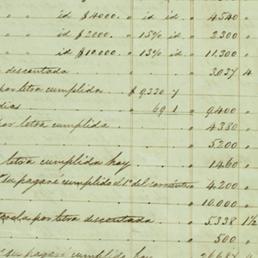 id $4000. " id id. " 4.540 "
id $2000. " 15% id. " 2.300 "
id $10000. " 13% id. " 11.300 "
descontada " 3.037 4
por letra cumplida $9330 7
dias 69 1 " 9.400 "
por letra cumplida " 4.350 "
" 5.200 "
letra cumplida hoy " 1.460 "
su pagaré cumplido el 1º del corriente " 4.200 "
" 10.000 "
por letra descontada " 5.338 1½
" 500 "
su pagaré cumplido hoy